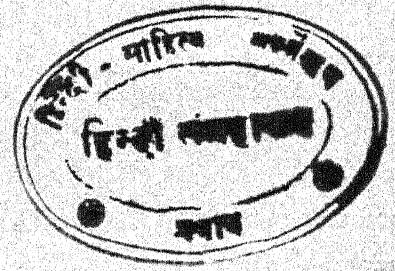 हिन्दी - साहित्य सम्मेलन
हिन्दी संग्रहालय
प्रयाग